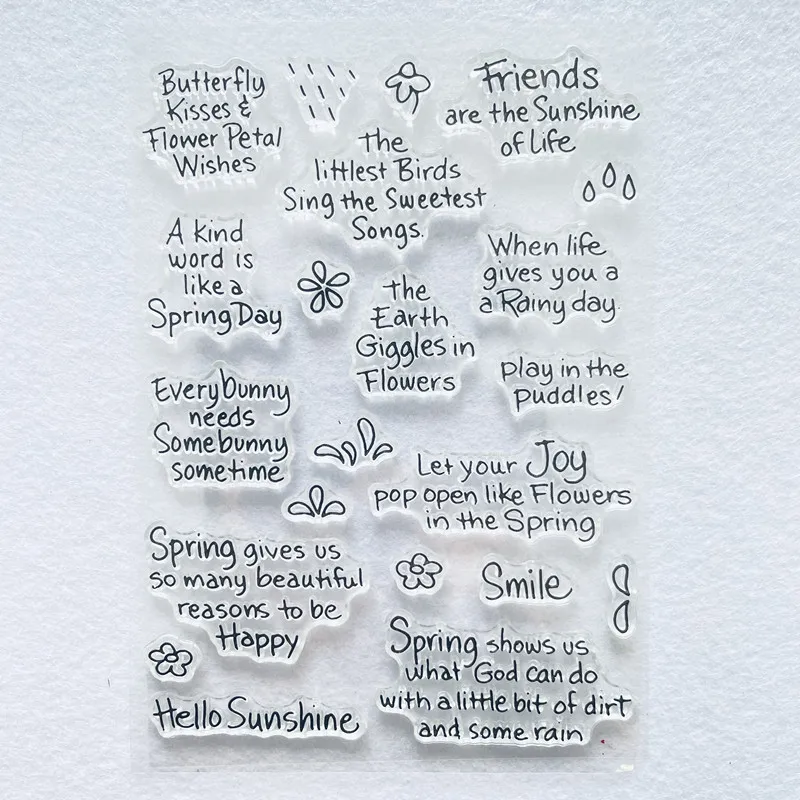 Butterfly
Kisses &
Flower Petal
Wishes
Friends
are the Sunshine
of life
the
littlest Birds
Sing the Sweetest
Songs.
A kind
word is
like a
Spring Day
When life
gives you a
a Rainy day.
the
Earth
Giggles in
Flowers
play in the
puddles!
Everybunny
needs
Somebunny
sometime
Let your Joy
pop open like Flowers
in the Spring
Spring gives us
so many beautiful
reasons to be
Happy
Smile
Spring shows us
what God can do
with a little bit of dirt
and some rain
Hello Sunshine